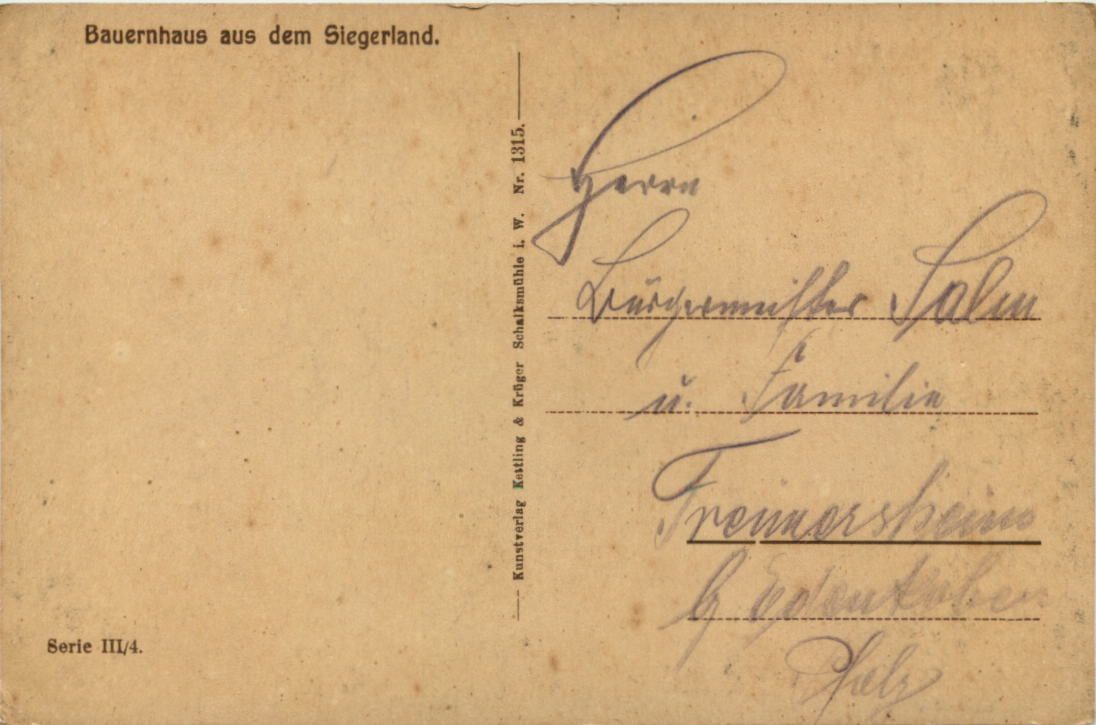 Bauernhaus aus dem Siegerland.
Serie III/4.
Kunstverlag Kettling & Krüger Schalksmühle i. W. Nr. 1315.
Herrn
Bürgermeister Salm
u. Familie
Freimersheim
b/ Edenkoben
Pfalz